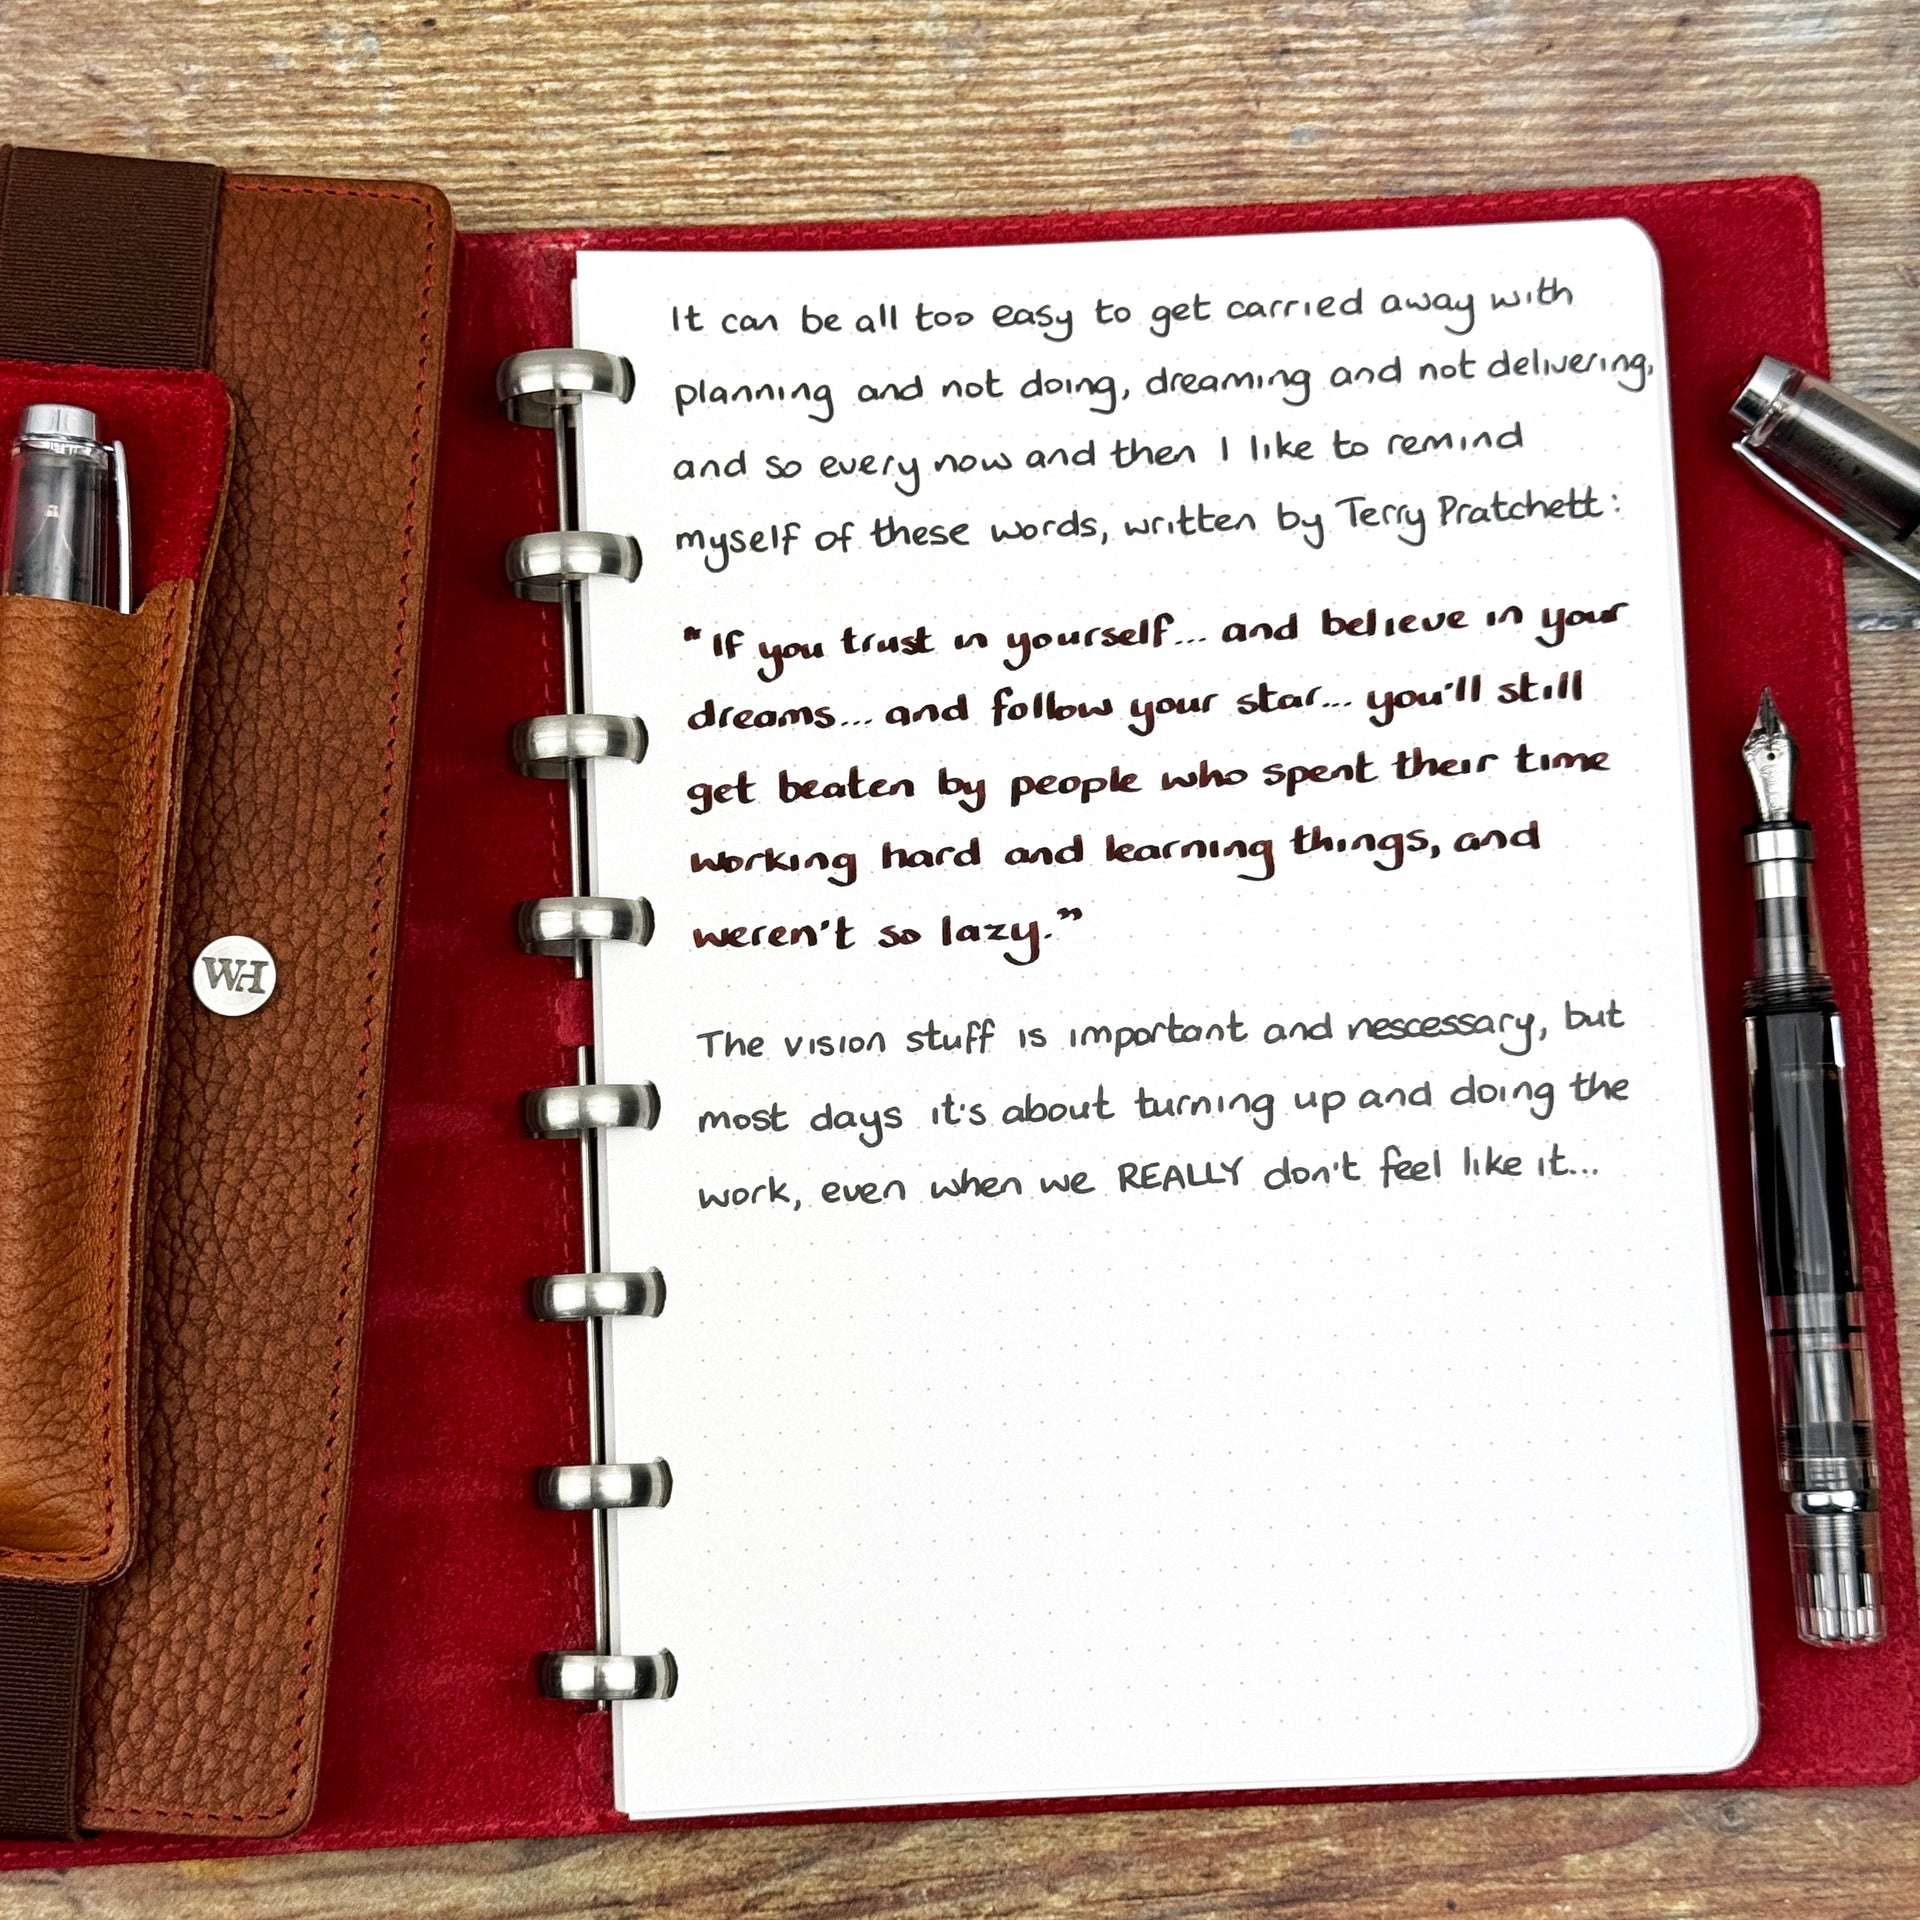 WH
It can be all too easy to get carried away with
planning and not doing, dreaming and not delivering,
and so every now and then I like to remind
myself of these words, written by Terry Pratchett:
"If you trust in yourself... and believe in your
dreams... and follow your star... you'll still
get beaten by people who spent their time
working hard and learning things, and
weren't so lazy."
The vision stuff is important and nescessary, but
most days it's about turning up and doing the
work, even when we REALLY don't feel like it...